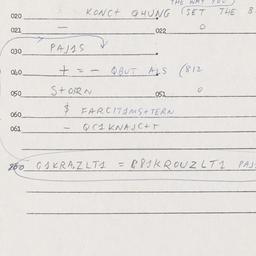 THE WAY YOU
020 KONC+ QHUNG (SET THE B
021 — 022 0
030 PAJ1S
040 + = - QBUT ALS (812
050 S+ORN 051 0
060 $ FARCIT1MS+TERN
061 - QC1KNAJC++
860 G1KRAZLT1 = B81KROUZLT1 PAJ